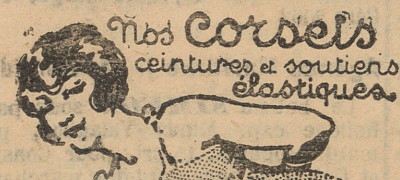 Nos Corsets
ceintures et soutiens
élastiques